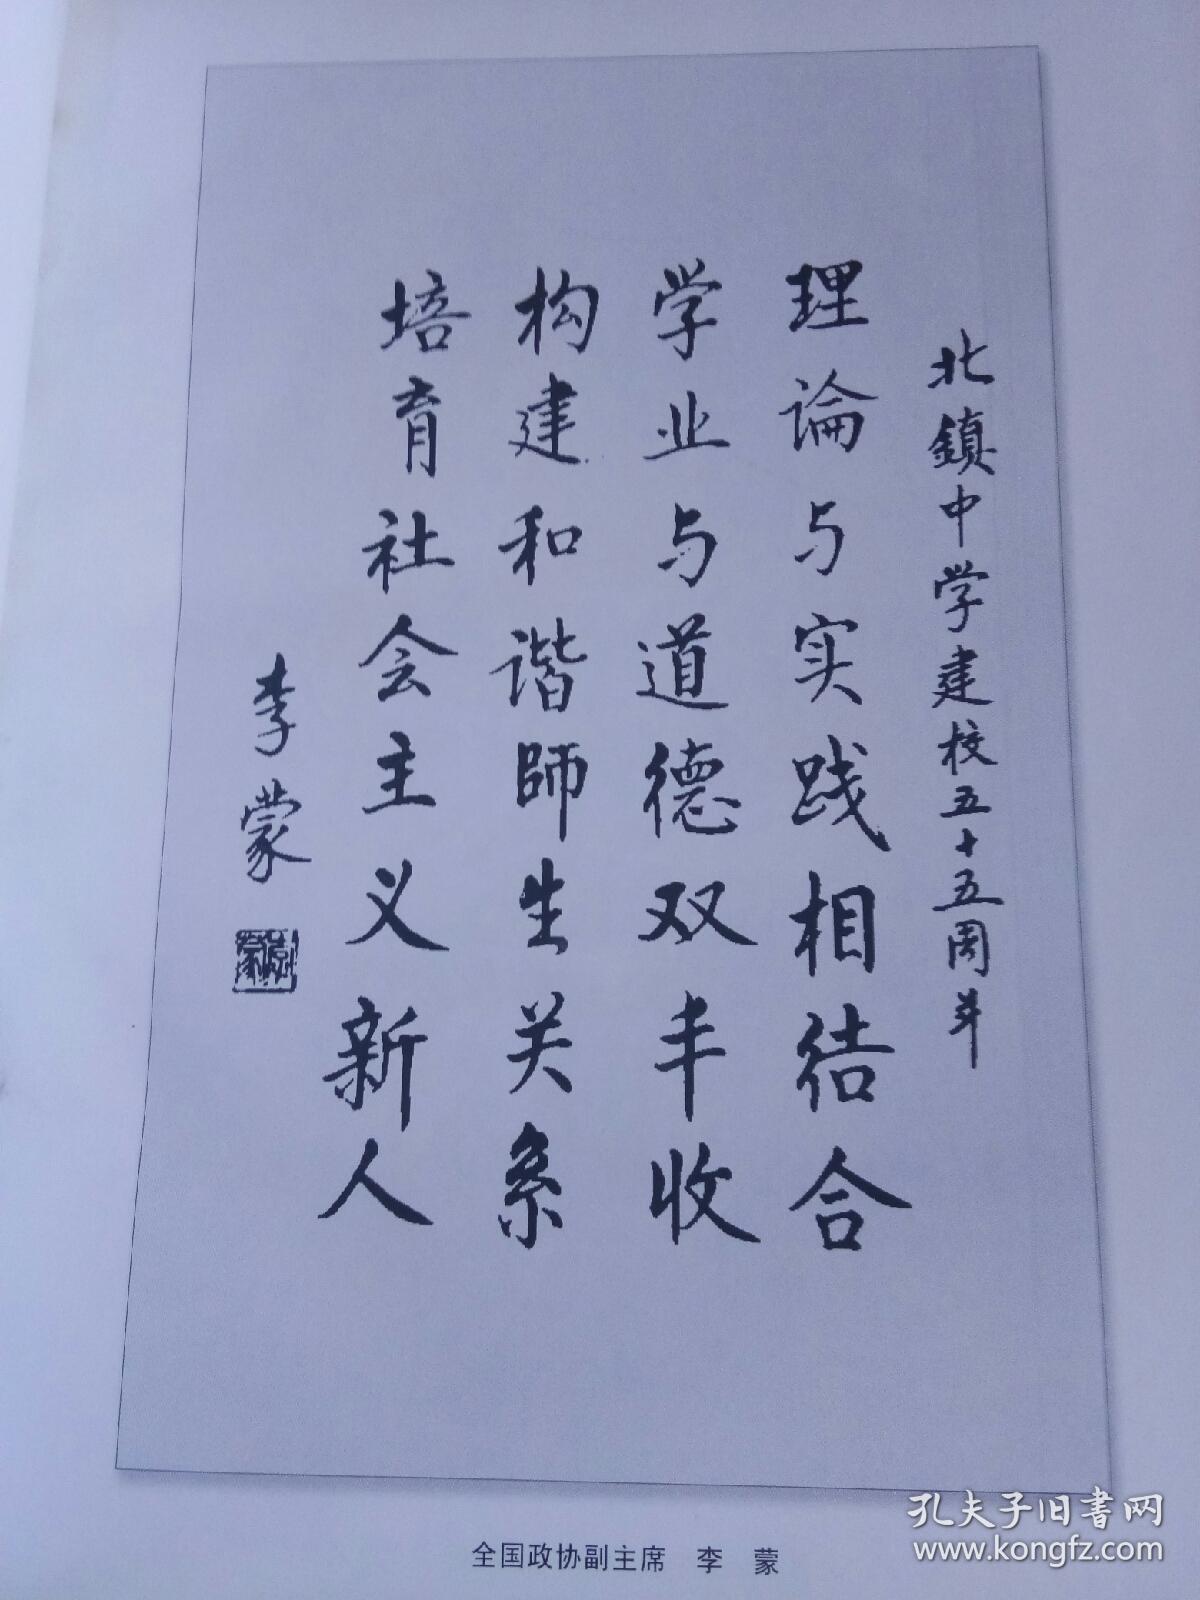 北鎮中学建校五十五周年
理論与实践相结合
学业与道德双丰收
构建和谐師生关系
培育社会主义新人
李蒙
全国政协副主席 李 蒙
孔夫子旧书网
www.kongfz.com